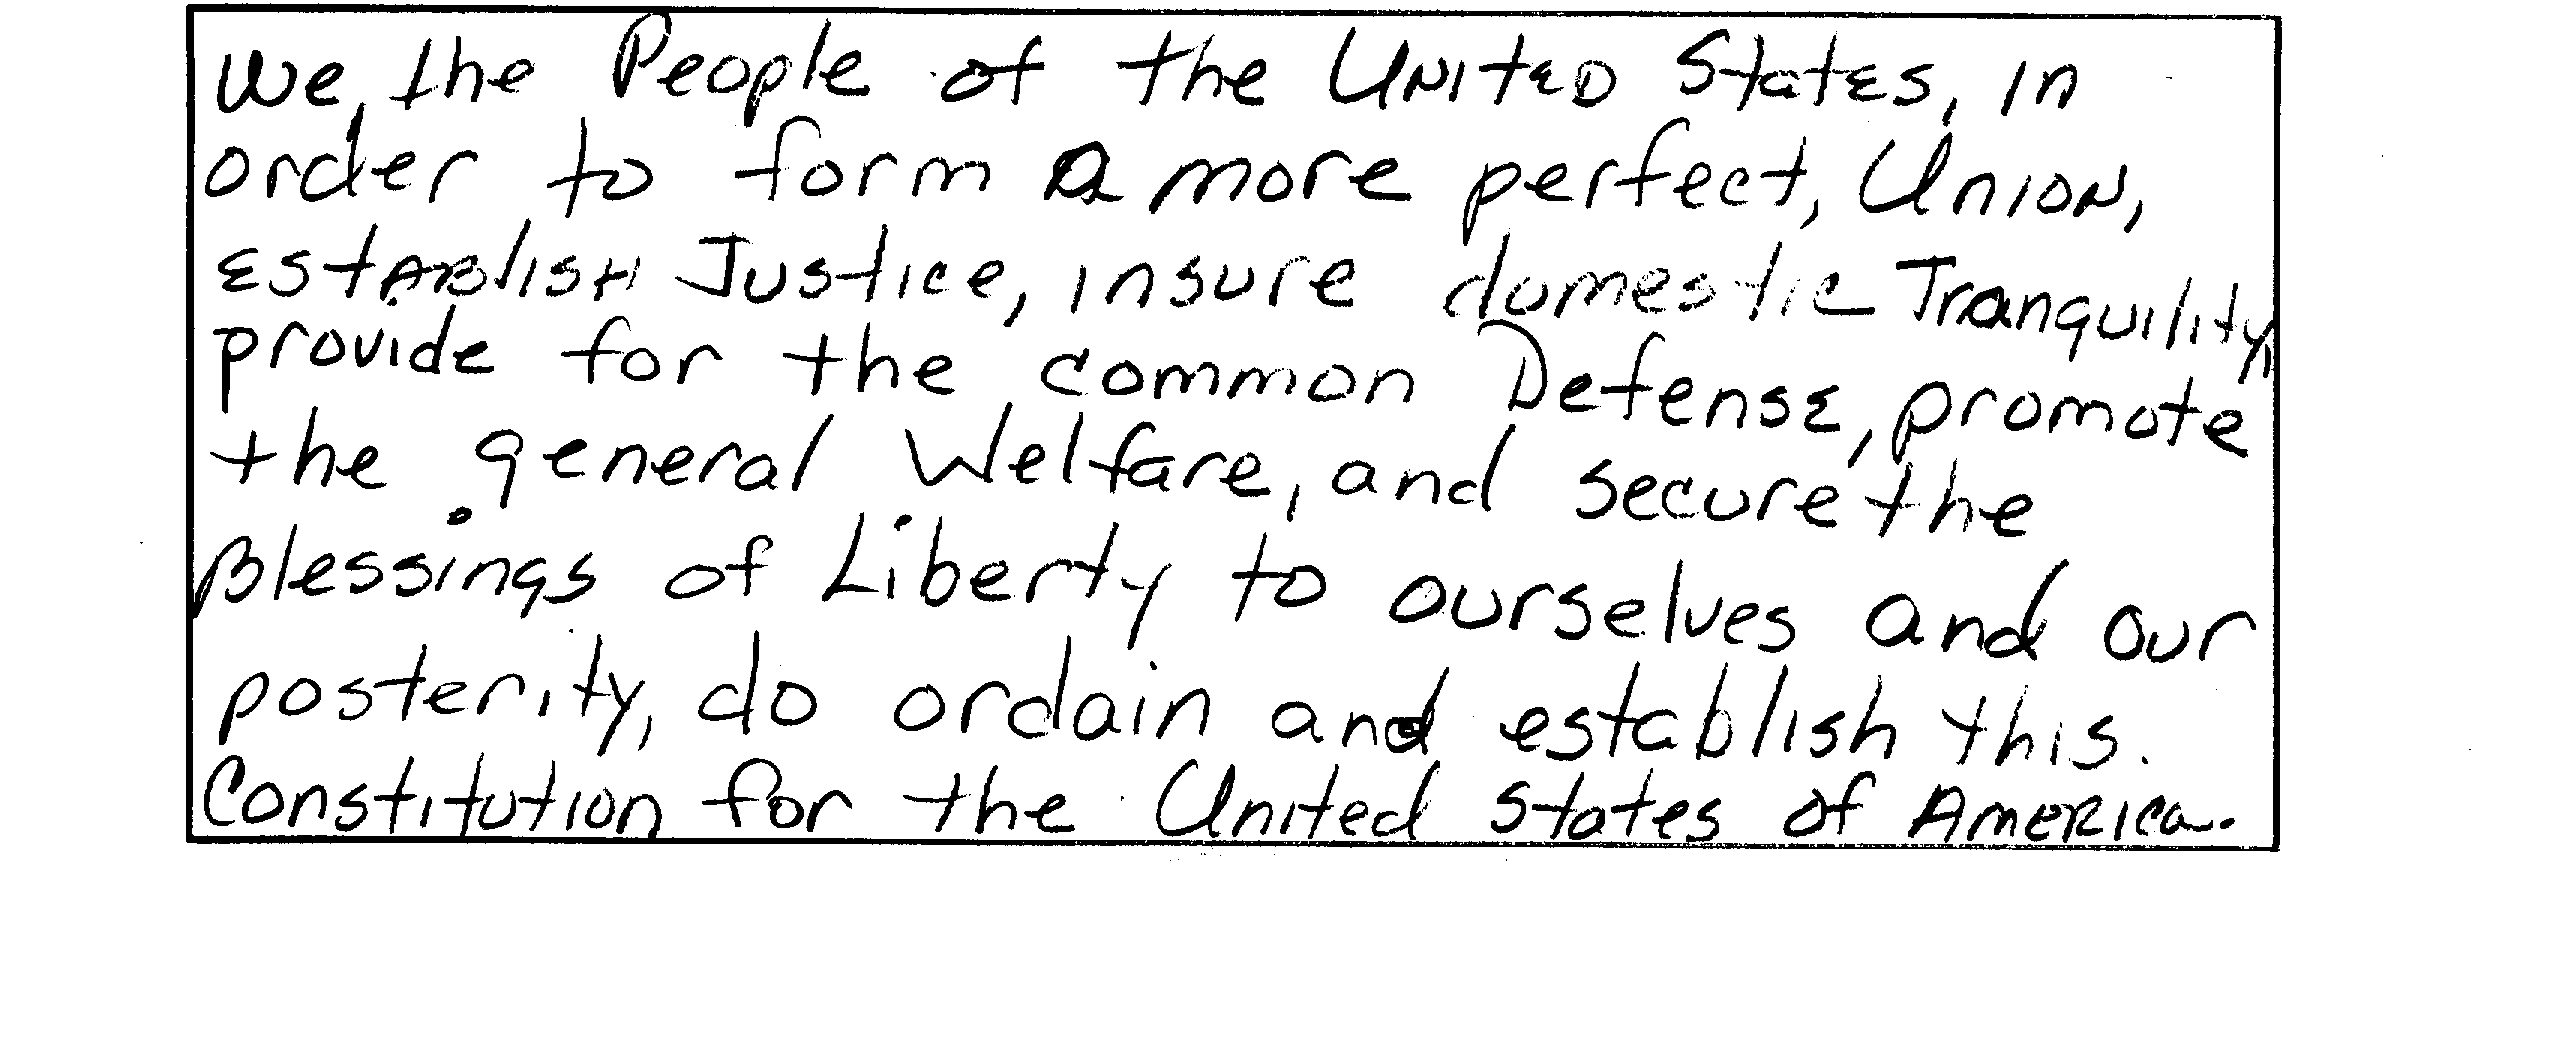 We, the People of the United States, in
order to form a more perfect, Union,
establish Justice, insure domestic Tranquility,
provide for the common Defense, promote
the general Welfare, and secure the
Blessings of Liberty to ourselves and our
posterity, do ordain and establish this.
Constitution for the United States of America.